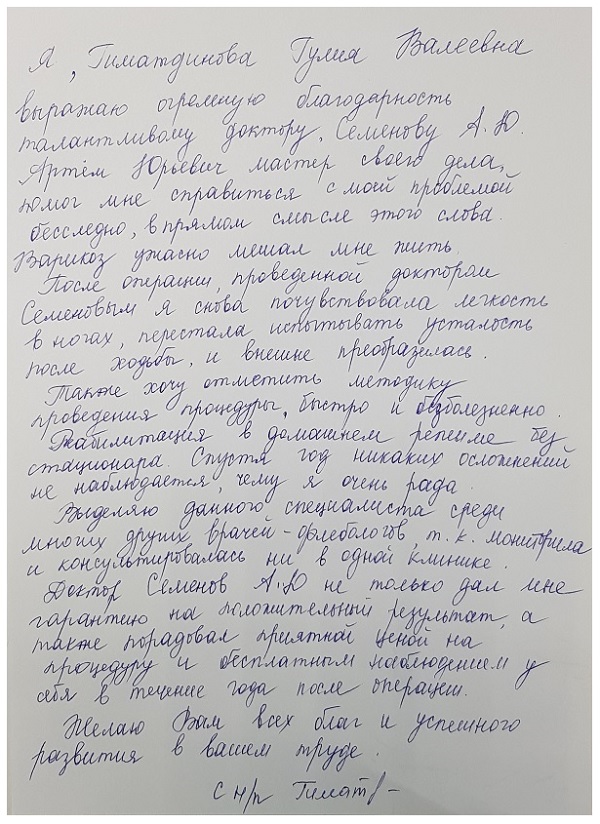 Я, Гиматдинова Гулия Валеевна
выражаю огромную благодарность
талантливому доктору, Семенову А.Ю.
Артём Юрьевич мастер своего дела,
помог мне справиться с моей проблемой
бесследно, в прямом смысле этого слова.
Варикоз ужасно мешал мне жить.
После операции, проведенной доктором
Семеновым я снова почувствовала легкость
в ногах, перестала испытывать усталость
после ходьбы, и внешне преобразилась.
Также хочу отметить методику
проведения процедуры, быстро и безболезненно.
Реабилитация в домашнем режиме без
стационара. Спустя год никаких осложнений
не наблюдается, чему я очень рада.
Выделяю данного специалиста среди
многих других врачей-флебологов, т.к. мониторила
и консультировалась ни в одной клинике.
Доктор Семенов А.Ю не только дал мне
гарантию на положительный результат, а
также порадовал приятной ценой на
процедуру и бесплатным наблюдением у
себя в течение года после операции.
Желаю Вам всех благ и успешного
развития в вашем труде.
с н/п Гимат